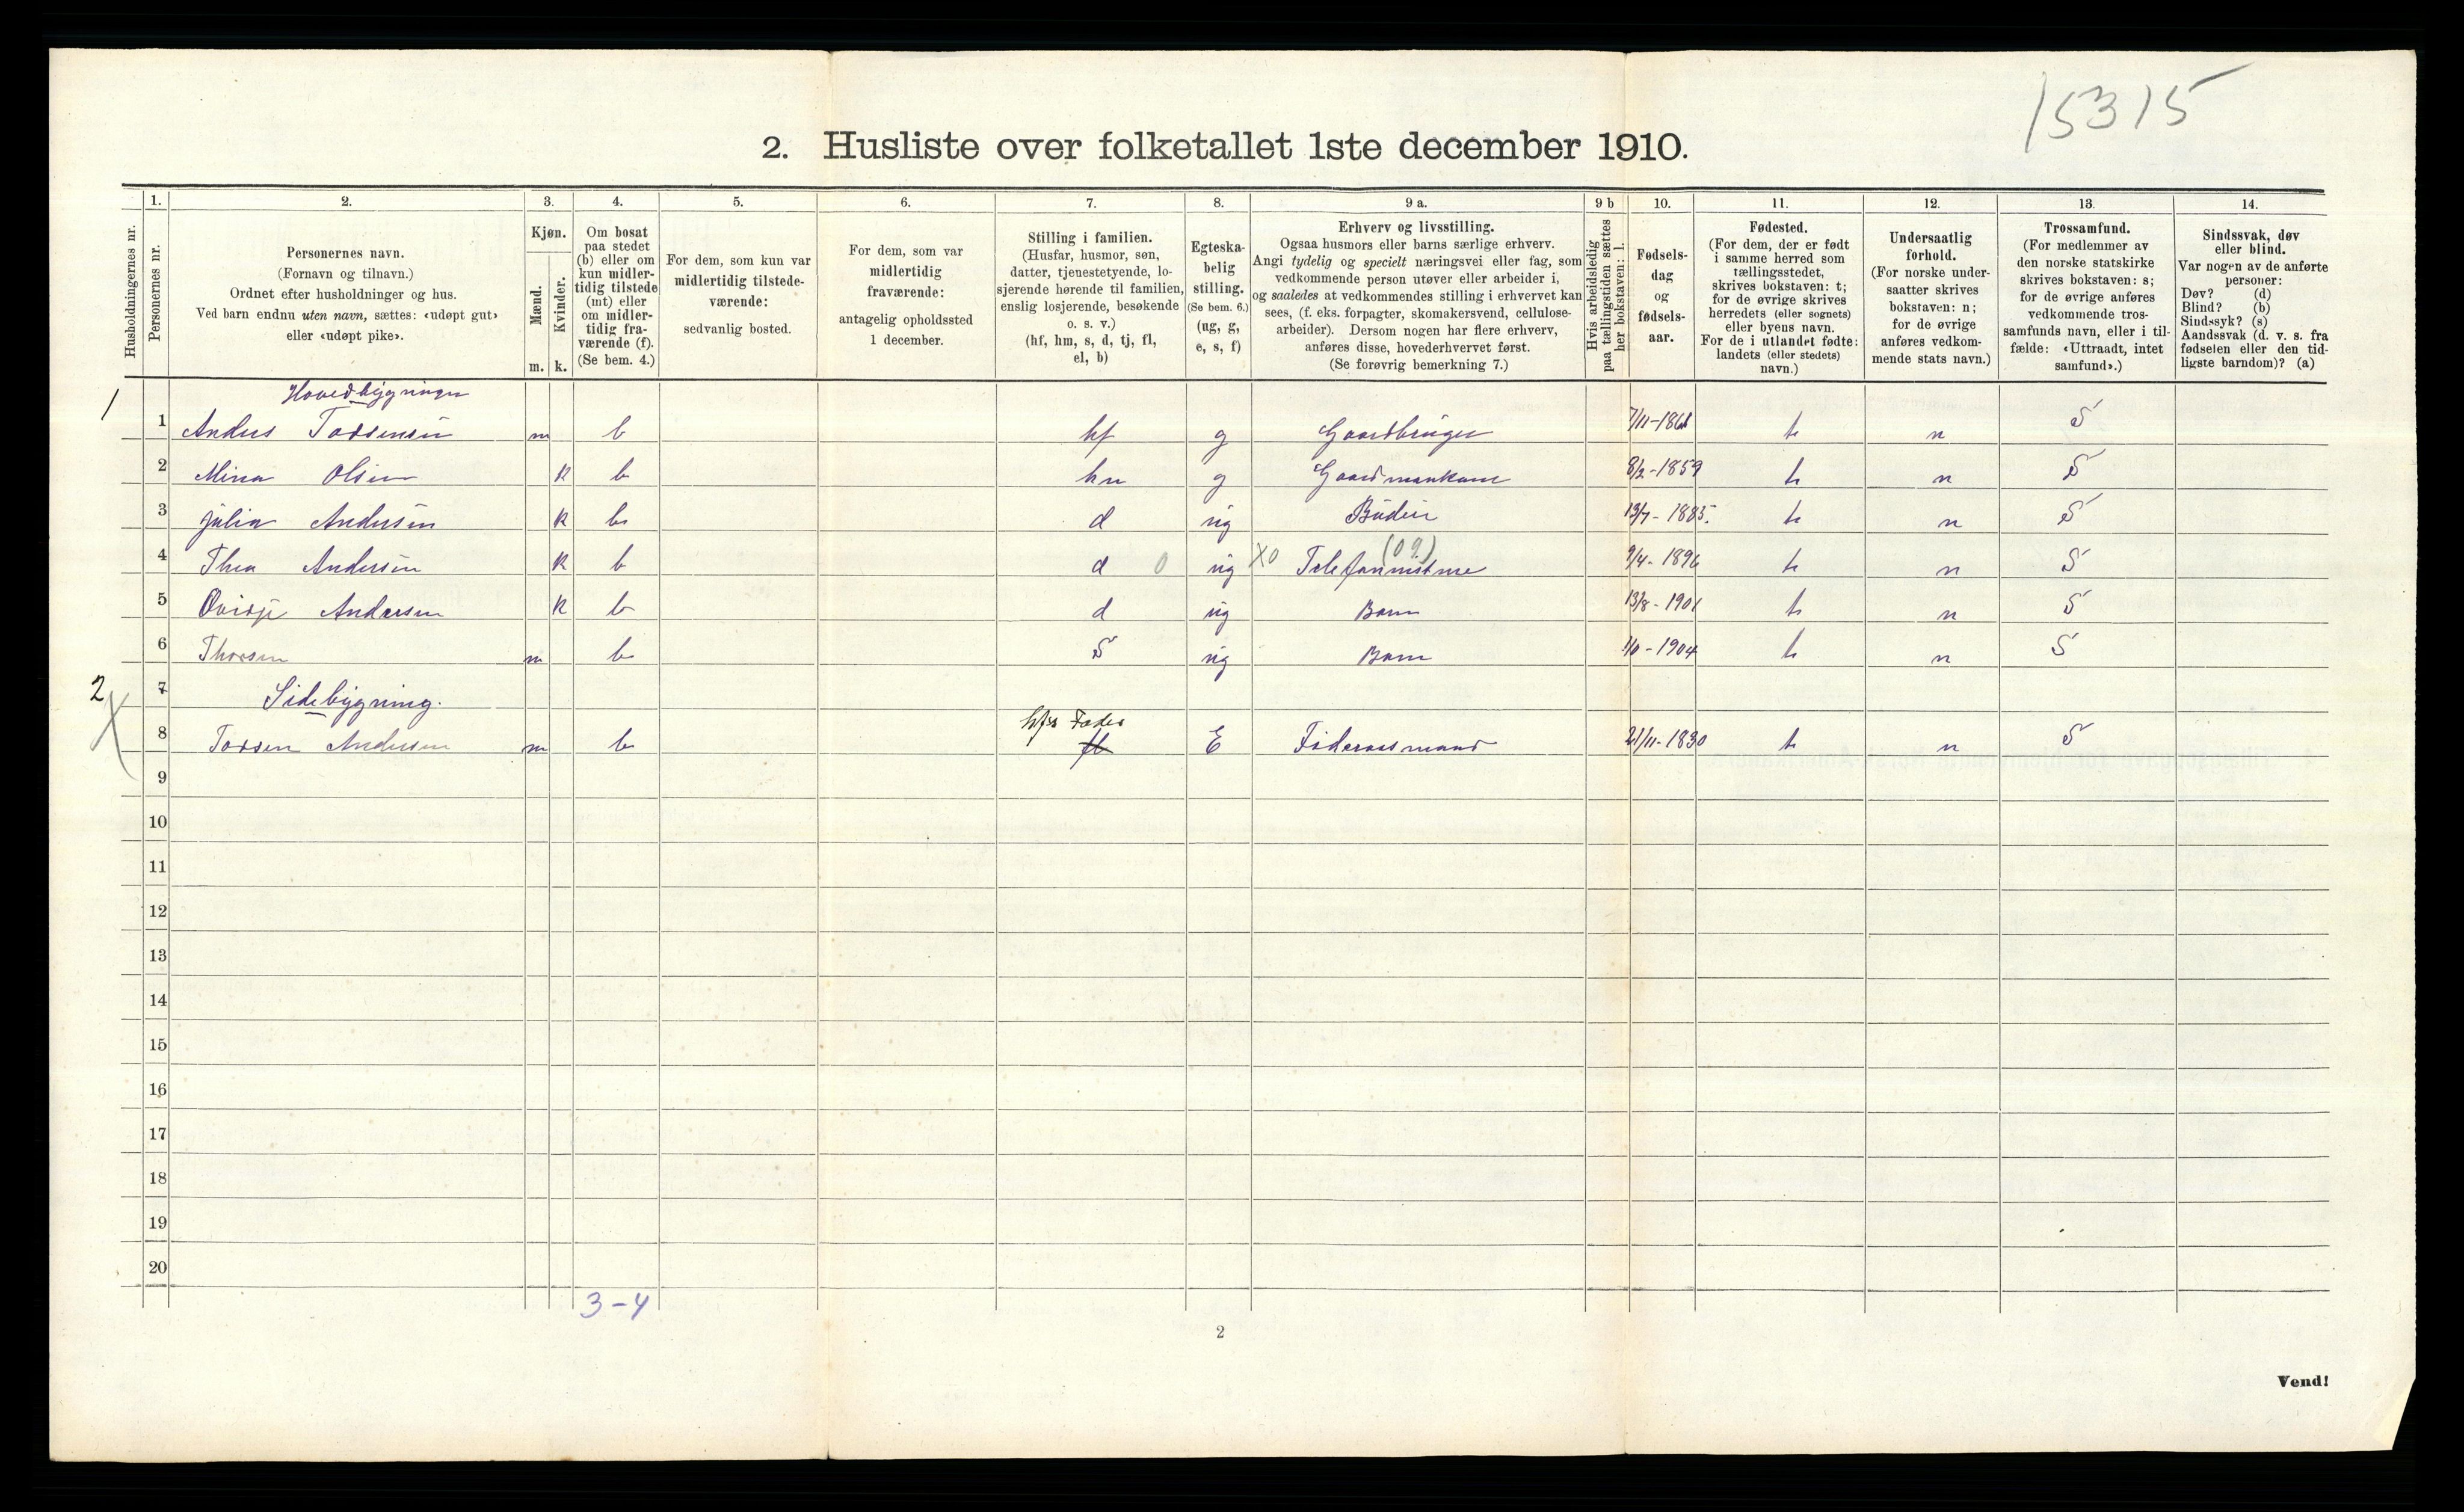 15315
2. Husliste over folketallet 1ste december 1910.
1. 2. 3. 4. 5. 6. 7. 8. 9 a. 9 b 10. 11. 12. 13. 14.
Husholdningernes nr.
Personernes nr.
Personernes navn.
(Fornavn og tilnavn.)
Ordnet efter husholdninger og hus.
Ved barn endnu uten navn, sættes: «udøpt gut»
eller «udøpt pike».
Kjøn.
Mænd.
Kvinder.
m. k.
Om bosat
paa stedet
(b) eller om
kun midler-
tidig tilstede
(mt) eller
om midler-
tidig fra-
værende (f).
(Se bem. 4.)
For dem, som kun var
midlertidig tilstede-
værende:
sedvanlig bosted.
For dem, som var
midlertidig
fraværende:
antagelig opholdssted
1 december.
Stilling i familien.
(Husfar, husmor, søn,
datter, tjenestetyende, lo-
sjerende hørende til familien,
enslig losjerende, besøkende
o. s. v.)
(hf, hm, s, d, tj, fl,
el, b)
Egteska-
belig
stilling.
(Se bem. 6.)
(ug, g,
e, s, f)
Erhverv og livsstilling.
Ogsaa husmors eller barns særlige erhverv.
Angi tydelig og specielt næringsvei eller fag, som
vedkommende person utøver eller arbeider i,
og saaledes at vedkommendes stilling i erhvervet kan
sees, (f. eks. forpagter, skomakersvend, cellulose-
arbeider). Dersom nogen har flere erhverv,
anføres disse, hovederhvervet først.
(Se forøvrig bemerkning 7.)
Hvis arbeidsledig
paa tællingstiden sættes
her bokstaven: l.
Fødsels-
dag
og
fødsels-
aar.
Fødested.
(For dem, der er født
i samme herred som
tællingsstedet,
skrives bokstaven: t;
for de øvrige skrives
herredets (eller sognets)
eller byens navn.
For de i utlandet fødte:
landets (eller stedets)
navn.)
Undersaatlig
forhold.
(For norske under-
saatter skrives
bokstaven: n;
for de øvrige
anføres vedkom-
mende stats navn.)
Trossamfund.
(For medlemmer av
den norske statskirke
skrives bokstaven: s;
for de øvrige anføres
vedkommende tros-
samfunds navn, eller i til-
fælde: «Uttraadt, intet
samfund».)
Sindssvak, døv
eller blind.
Var nogen av de anførte
personer:
Døv? (d)
Blind? (b)
Sindssyk? (s)
Aandssvak (d. v. s. fra
fødselen eller den tid-
ligste barndom)? (a)
1 Hovedbygningen
1 Anders Torsensen m b hf g Gaardbruger 7/11-1861 t n S
2 Mina Olsen k b hm g Gaardmankone 8/2-1859 t n S
3 Julia Andersen k b d ug Budeie 13/7-1885. t n S
4 Thea Andersen k b d 0 ug X0 Telefonnistine (09.) 9/4-1896 t n S
5 Ovidje Andersen k b d ug Barn 13/8-1901 t n S
6 Thorsen m b S ug Barn 1/10-1904 t n S
2 7 Sidebygning.
8 Torsen Andersen m b hfs Fader fl E Føderaadsmand 21/11-1830 t n S
9
10
11
12
13
14
15
16
17
18
19
20
3-4
2
Vend!